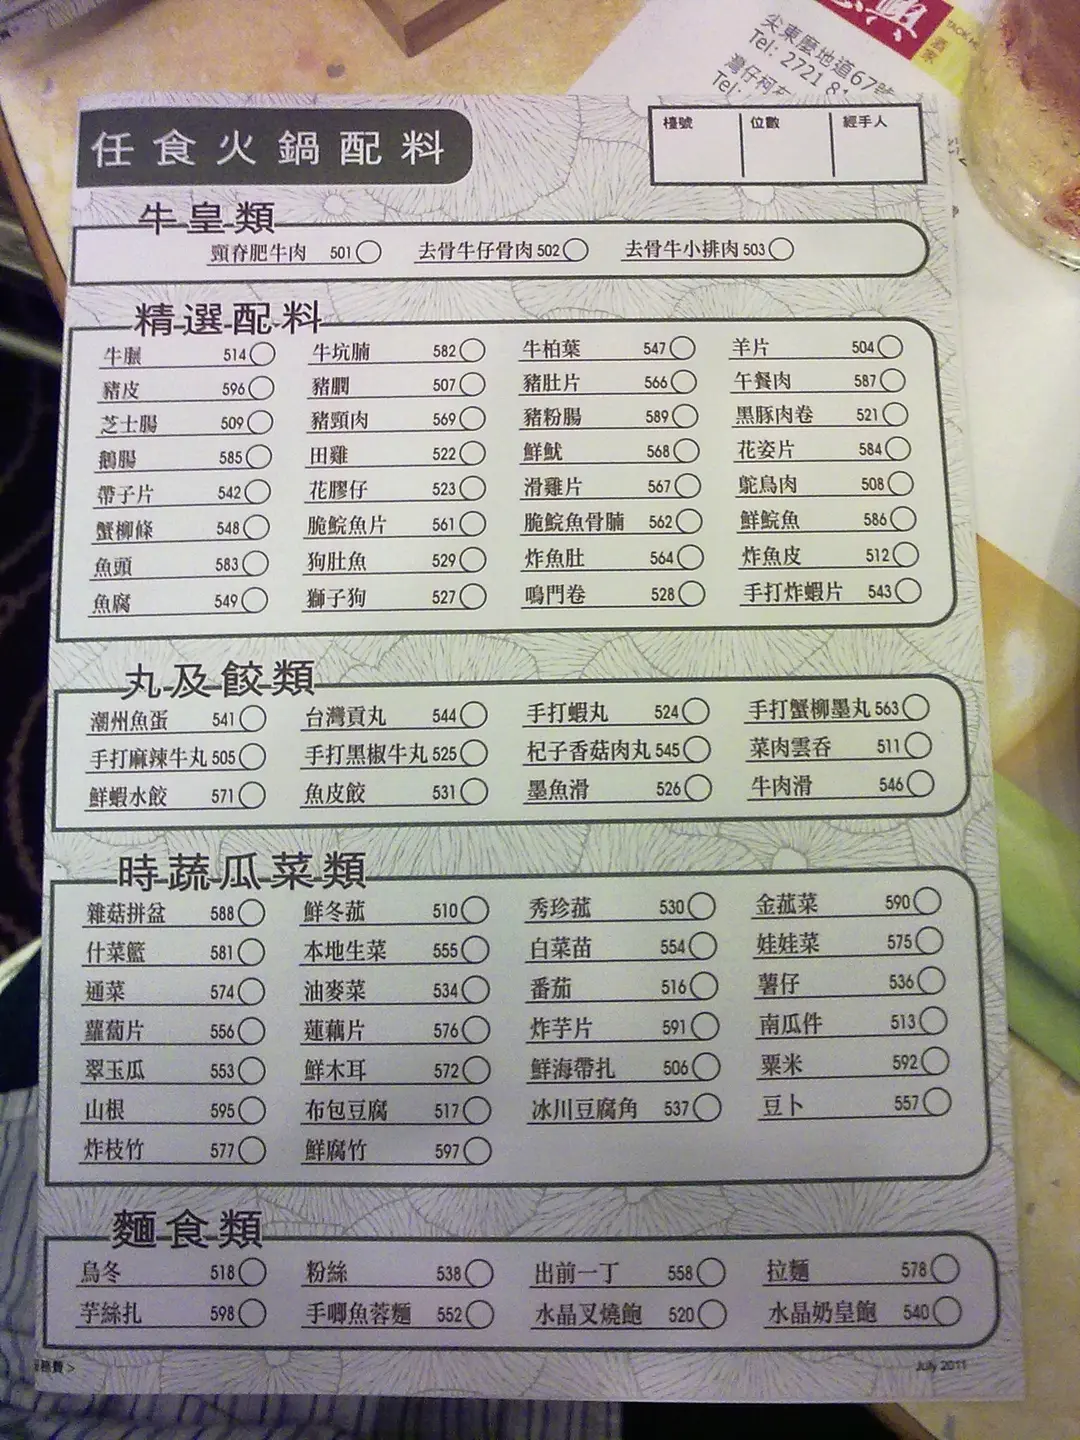 酒家
TACK H
尖東麼地道67號
Tel: 2721 81
灣仔柯
Tel:
任食火鍋配料
檯號 位數 經手人
牛皇類
頸脊肥牛肉 501 去骨牛仔骨肉 502 去骨牛小排肉 503
精選配料
牛脤 514 牛坑腩 582 牛柏葉 547 羊片 504
豬皮 596 豬膶 507 豬肚片 566 午餐肉 587
芝士腸 509 豬頸肉 569 豬粉腸 589 黑豚肉卷 521
鵝腸 585 田雞 522 鮮魷 568 花姿片 584
帶子片 542 花膠仔 523 滑雞片 567 鴕鳥肉 508
蟹柳條 548 脆鯇魚片 561 脆鯇魚骨腩 562 鮮鯇魚 586
魚頭 583 狗肚魚 529 炸魚肚 564 炸魚皮 512
魚腐 549 獅子狗 527 鳴門卷 528 手打炸蝦片 543
丸及餃類
潮州魚蛋 541 台灣貢丸 544 手打蝦丸 524 手打蟹柳墨丸 563
手打麻辣牛丸 505 手打黑椒牛丸 525 杞子香菇肉丸 545 菜肉雲吞 511
鮮蝦水餃 571 魚皮餃 531 墨魚滑 526 牛肉滑 546
時蔬瓜菜類
雜菇拼盆 588 鮮冬菰 510 秀珍菰 530 金菰菜 590
什菜籃 581 本地生菜 555 白菜苗 554 娃娃菜 575
通菜 574 油麥菜 534 番茄 516 薯仔 536
蘿蔔片 556 蓮藕片 576 炸芋片 591 南瓜件 513
翠玉瓜 553 鮮木耳 572 鮮海帶扎 506 粟米 592
山根 595 布包豆腐 517 冰川豆腐角 537 豆卜 557
炸枝竹 577 鮮腐竹 597
麵食類
烏冬 518 粉絲 538 出前一丁 558 拉麵 578
芋絲扎 598 手唧魚蓉麵 552 水晶叉燒飽 520 水晶奶皇飽 540
務費 > July 2011